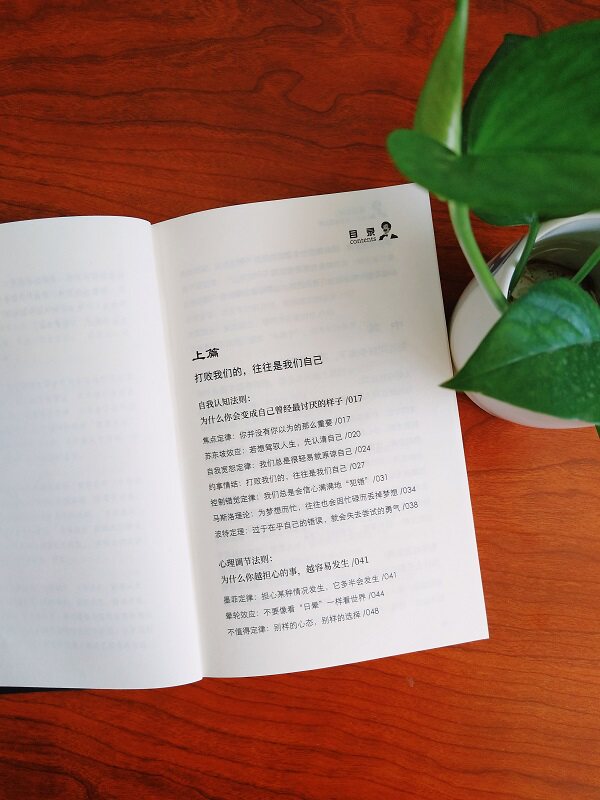 目 录
contents
上篇
打败我们的，往往是我们自己
自我认知法则：
为什么你会变成自己曾经最讨厌的样子 /017
焦点定律：你并没有你以为的那么重要 /017
苏东坡效应：若想驾驭人生，先认清自己 /020
自我宽恕定律：我们总是很轻易就原谅自己 /024
约拿情结：打败我们的，往往是我们自己 /027
控制错觉定律：我们总是会信心满满地“犯错” /031
马斯洛理论：为梦想而忙，往往也会因忙碌而丢掉梦想 /034
波特定理：过于在乎自己的错误，就会失去尝试的勇气 /038
心理调节法则：
为什么你越担心的事，越容易发生 /041
墨菲定律：担心某种情况发生，它多半会发生 /041
晕轮效应：不要像看“日晕”一样看世界 /044
不值得定律：别样的心态，别样的选择 /048